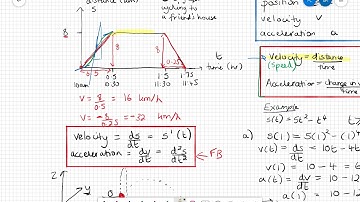 distance (km)
cycling to
a friend's house
S
8
8
8
0.5
0.25
t
time (hr)
0.5
1.5
1.75
10am
11:30
11:45
V = 8/0.5 = 16 km/h
V = -8/0.25 = -32 km/h
velocity = ds/dt = s'(t)
acceleration = dv/dt = d²s/dt²
FB
2
y
0
position
velocity v
acceleration a
Velocity = distance/time
(speed)
Acceleration = change in v/time
Example
s(t) = 5t² - t⁴
a) s(1) = 5(1)² - (1)
v(t) = ds/dt = 10t - 4t
v(1) = 10 - 4 = 6
a(t) = dv/dt = 10 - 1
a(1) = 10 - 12